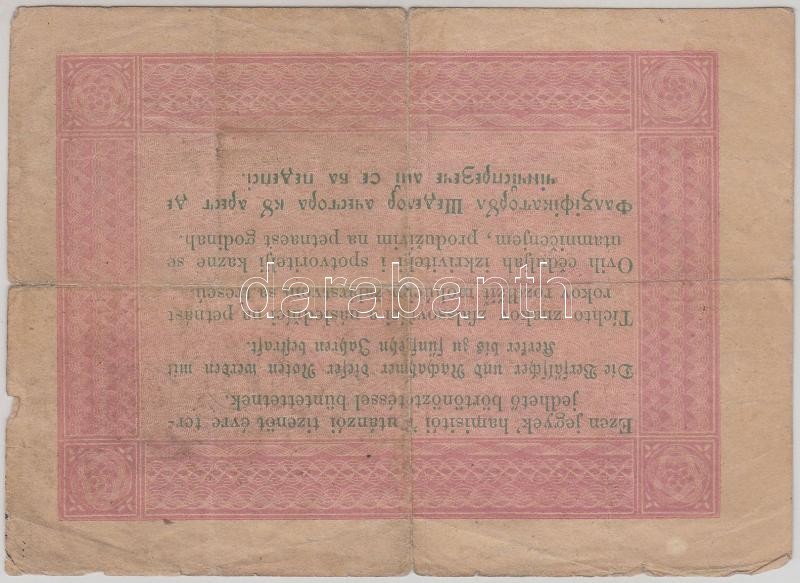 Ezen jegyek' hamisitói 's utánzói tizenöt évre ter-
jedhető börtönöztetéssel büntettetnek.
Die Verfälscher und Nachahmer dieser Noten werden mit
Kerker bis zu fünfzehn Jahren bestraft.
Tichto znakov na petnást
rokov
Ovih cédúljah izkriviteji i spotvoriteji kazne se
utamničenjem, produživim na petnaest godinah.
Фалзіфікаторꙋл Шеделор ачестора кꙋ арест де
чінчіспреӡече ані се ва педепсі.
darabanth